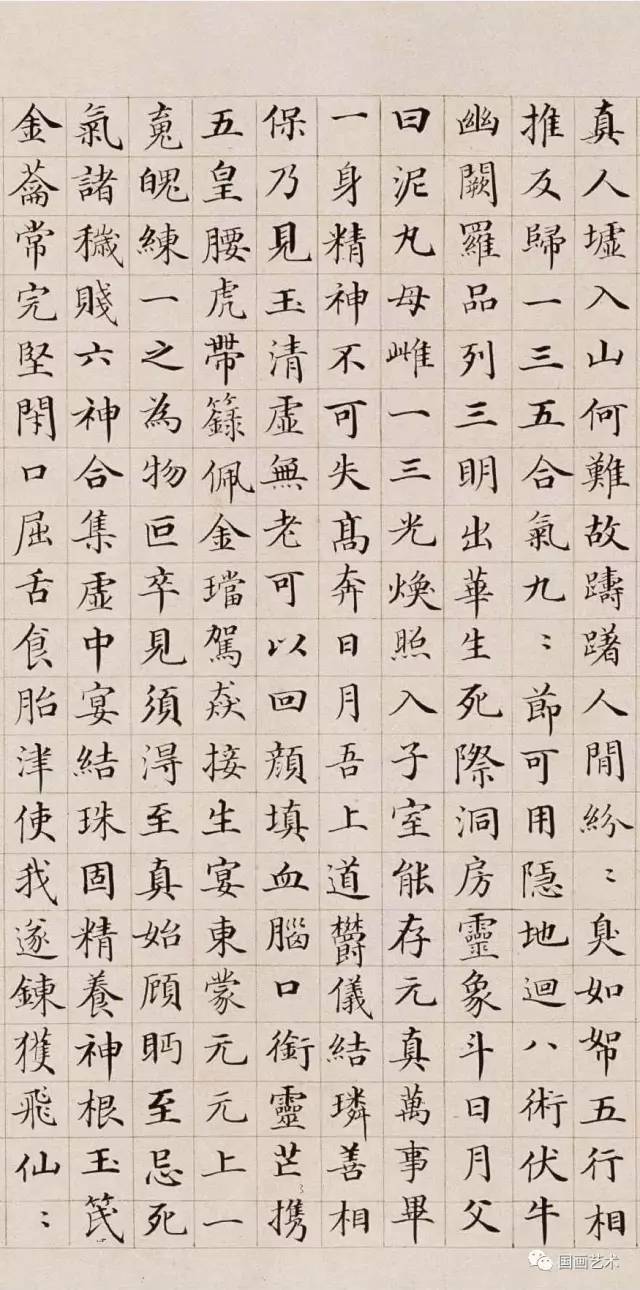 真人墟入山何難故躊躇人間紛〻臭如帤五行相
推反歸一三五合氣九〻節可用隱地迴八術伏牛
幽闕羅品列三明出華生死際洞房靈象斗日月父
曰泥丸母雌一三光煥照入子室能存元真萬事畢
一身精神不可失髙奔日月吾上道欝儀結璘善相
保乃見玉清虛無老可以回顔填血腦口銜靈芒携
五皇腰虎帶籙佩金璫駕焱接生宴東蒙元元上一
䰟魄練一之為物叵卒見須淂至真始顧眄至忌死
氣諸穢賤六神合集虛中宴結珠固精養神根玉笢
金籥常完堅閇口屈舌食胎津使我遂鍊獲飛仙〻
国画艺术